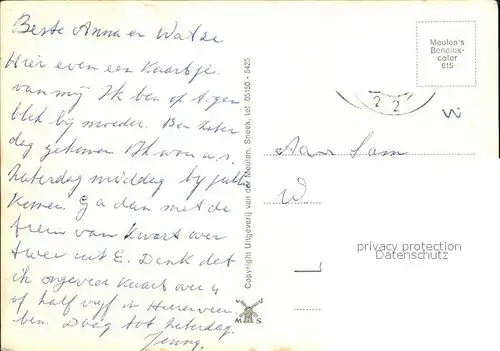 Beste Anna en Watze
Hier even een Kaartje
van mij Ik ben op 't ogen
blik bij moeder. Ben zater
dag gekomen. Ik wou a.s.
zaterdag middag bij jullie
komen. Ga dan met de
trein van Kwart over
twee uit E. Denk dat
ik ongeveer Kwart over 4
of half vijf in Heerenveen
ben. Daag tot zaterdag.
Jenny.
Copyright Uitgeverij van der Meulen, Sneek, tel. 05150 - 5425
vd
M S
Meulen's
Benelux-
color
615
2 2
Aan Fam
W
privacy protection
Datenschutz